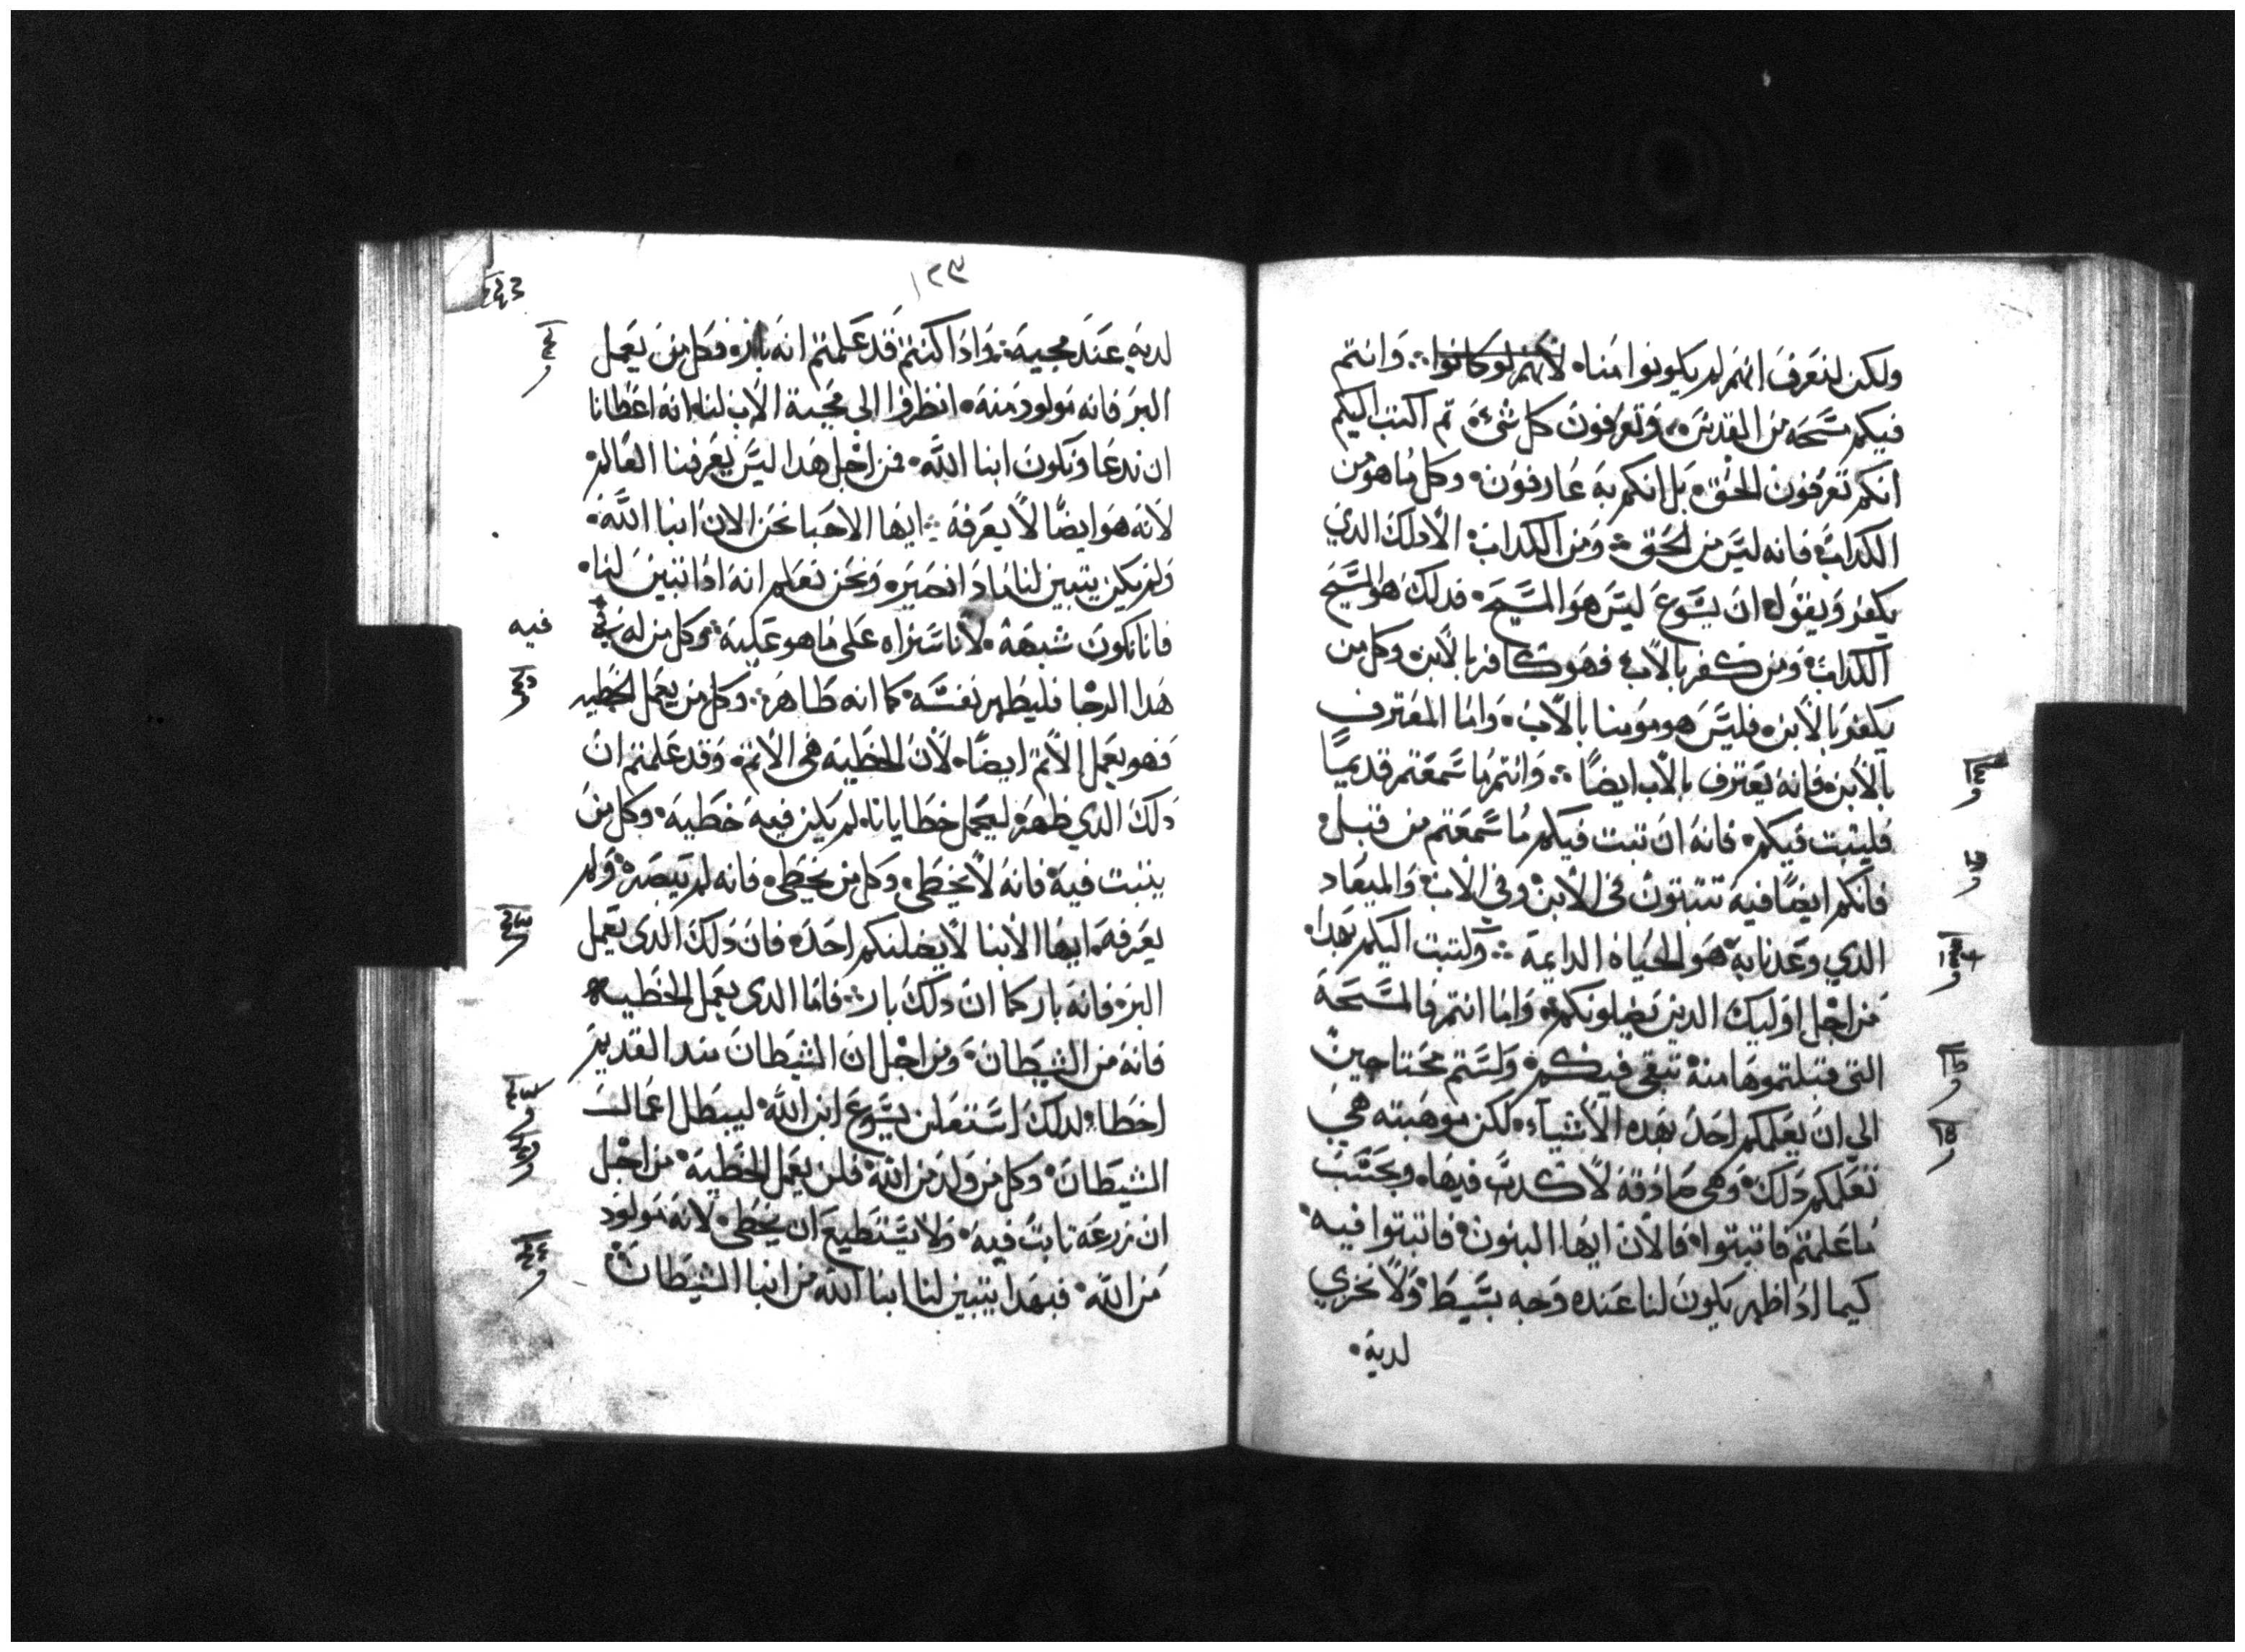 ولكن لنعرف انهم لم يكونوا منا لانهم لو كانوا وانتم
فيكم مسحه من القدس وتعرفون كل شيء ثم اكتب اليكم
انكم تعرفون الحق بل انكم به عارفون وكل ما هو من
الكداب فانه ليس من الحق ومن الكداب الا دلك الدي
يكفر ويقول ان يسوع ليس هو المسيح فدلك هو المسيح
الكداب ومن كفر بالاب فهو كافر بالابن وكل من
يكفر بالابن فليس هو مومنا بالاب واما المعترف
بالابن فانه يعترف بالاب ايضا وانتم ما سمعتم قديما
فليثبت فيكم فانه ان تبت فيكم ما سمعتم من قبل
فانكم ايضا فيه تتبتون في الابن وفي الاب والميعاد
الدي وعدنا به هو الحياه الدايمة وكتبت اليكم بهدا
من اجل اوليك الدين يضلونكم واما انتم فالمسحة
التي قبلتموها منه تبقي فيكم ولستم محتاجين
الي ان يعلمكم احد بهده الاشياء لكن موهبته هي
تعلمكم دلك وهي صادقة لا كدب فيها وبحسب
ما علمتم فاتبتوا فالان ايها البنون فاتبتوا فيه
كيما ادا ظهر يكون لنا عنده وجه بسيط ولا نخزي
لديه
١٢٣
لديه عند مجيه وادا كنتم قد علمتم انه بار فكل من يعمل
البر فانه مولود منه انظروا الي محبة الاب لنا انه اعطانا
ان ندعا ونكون ابنا الله فمن اجل هدا ليس يعرفنا العالم
لانه هو ايضا لا يعرفه ايها الاحبا نحن الان ابنا الله
ولم يكن يتبين لنا مادا نصير ونحن نعلم انه ادا تبين لنا
فانا نكون شبهه لانا سنراه على ما هو عليه وكل من له
فيه
هدا الرجا فليطهر نفسه كما انه طاهر وكل من يعمل الخطيه
فهو يعمل الاتم ايضا لان الخطيه هي الاتم وقد علمتم ان
دلك الدي ظهر ليحمل خطايانا لم يكن فيه خطيه وكل من
يتبت فيه فانه لا يخطي وكل من يخطي فانه لم يبصره ولم
يعرفه ايها الابنا لا يضلنكم احد فان دلك الدي يعمل
البر فانه بار كما ان دلك بار فاما الدي يعمل الخطيه
فانه من الشيطان ومن اجل ان الشيطان مند القديم
اخطا لدلك استعلن يسوع ابن الله ليبطل اعمال
الشيطان وكل من ولد من الله فلن يعمل الخطية من اجل
ان زرعه تابت فيه ولا يستطيع ان يخطي لانه مولود
من الله فبهدا يتبين لنا ابنا الله من ابنا الشيطان